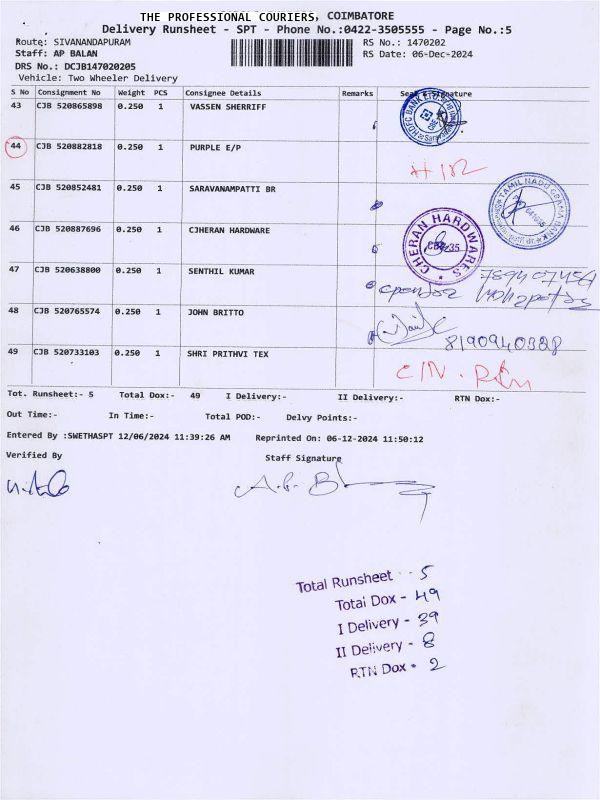 THE PROFESSIONAL COURIERS, COIMBATORE
Delivery Runsheet - SPT - Phone No.:0422-3505555 - Page No.:5
Route: SIVANANDAPURAM RS No.: 1470202
Staff: AP BALAN RS Date: 06-Dec-2024
DRS No.: DCJB147020205
Vehicle: Two Wheeler Delivery
S No Consignment No Weight PCS Consignee Details Remarks Seal & Signature
43 CJB 520865898 0.250 1 VASSEN SHERRIFF
HDFC BANK
44 CJB 520882818 0.250 1 PURPLE E/P
45 CJB 520852481 0.250 1 SARAVANAMPATTI BR
TAMIL NADU GRAMA BANK
46 CJB 520887696 0.250 1 CJHERAN HARDWARE
CHERAN HARDWARES
47 CJB 520638800 0.250 1 SENTHIL KUMAR
48 CJB 520765574 0.250 1 JOHN BRITTO
49 CJB 520733103 0.250 1 SHRI PRITHVI TEX
Tot. Runsheet:- 5 Total Dox:- 49 I Delivery:- II Delivery:- RTN Dox:-
Out Time:- In Time:- Total POD:- Delvy Points:-
Entered By :SWETHASPT 12/06/2024 11:39:26 AM Reprinted On: 06-12-2024 11:50:12
Verified By Staff Signature
Total Runsheet - 5
Total Dox - 49
I Delivery - 39
II Delivery - 8
RTN Dox - 2